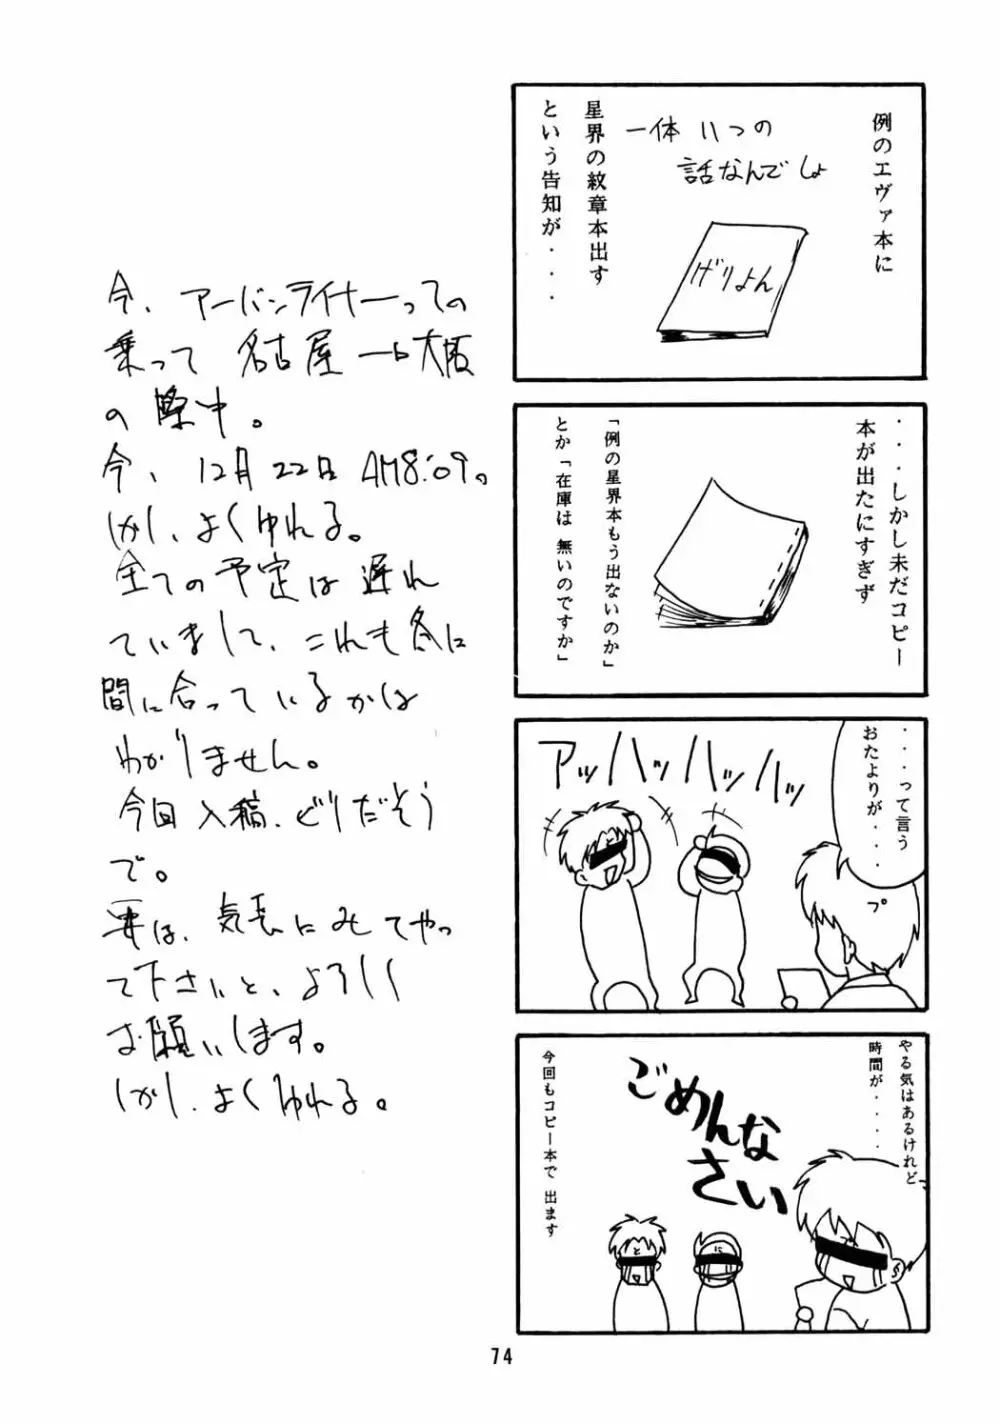 例のエヴァ本に
一体いつの
話なんでしょ
げりよん
星界の紋章本出す
という告知が・・・
・・・しかし未だコピー
本が出たにすぎず
「例の星界本もう出ないのか」
とか「在庫は 無いのですか」
・・・って言う
おたよりが・・・
プ
アッハッハッハッ
やる気はあるけれど
時間が・・・・
ごめんな
さい
と
に
プ
今回もコピー本で 出ます
今、アーバンライナーっての
乗って 名古屋→大阪
の際中。
今、12月22日AM8:09。
しかし、よくゆれる。
全ての予定は遅れ
ていまして、これも冬に
間に合っているかは
わかりません。
今回入稿、どりだそう
で。
要は、気長にみてやっ
て下さいと、よろしく
お願いします。
しかし、よくゆれる。
74